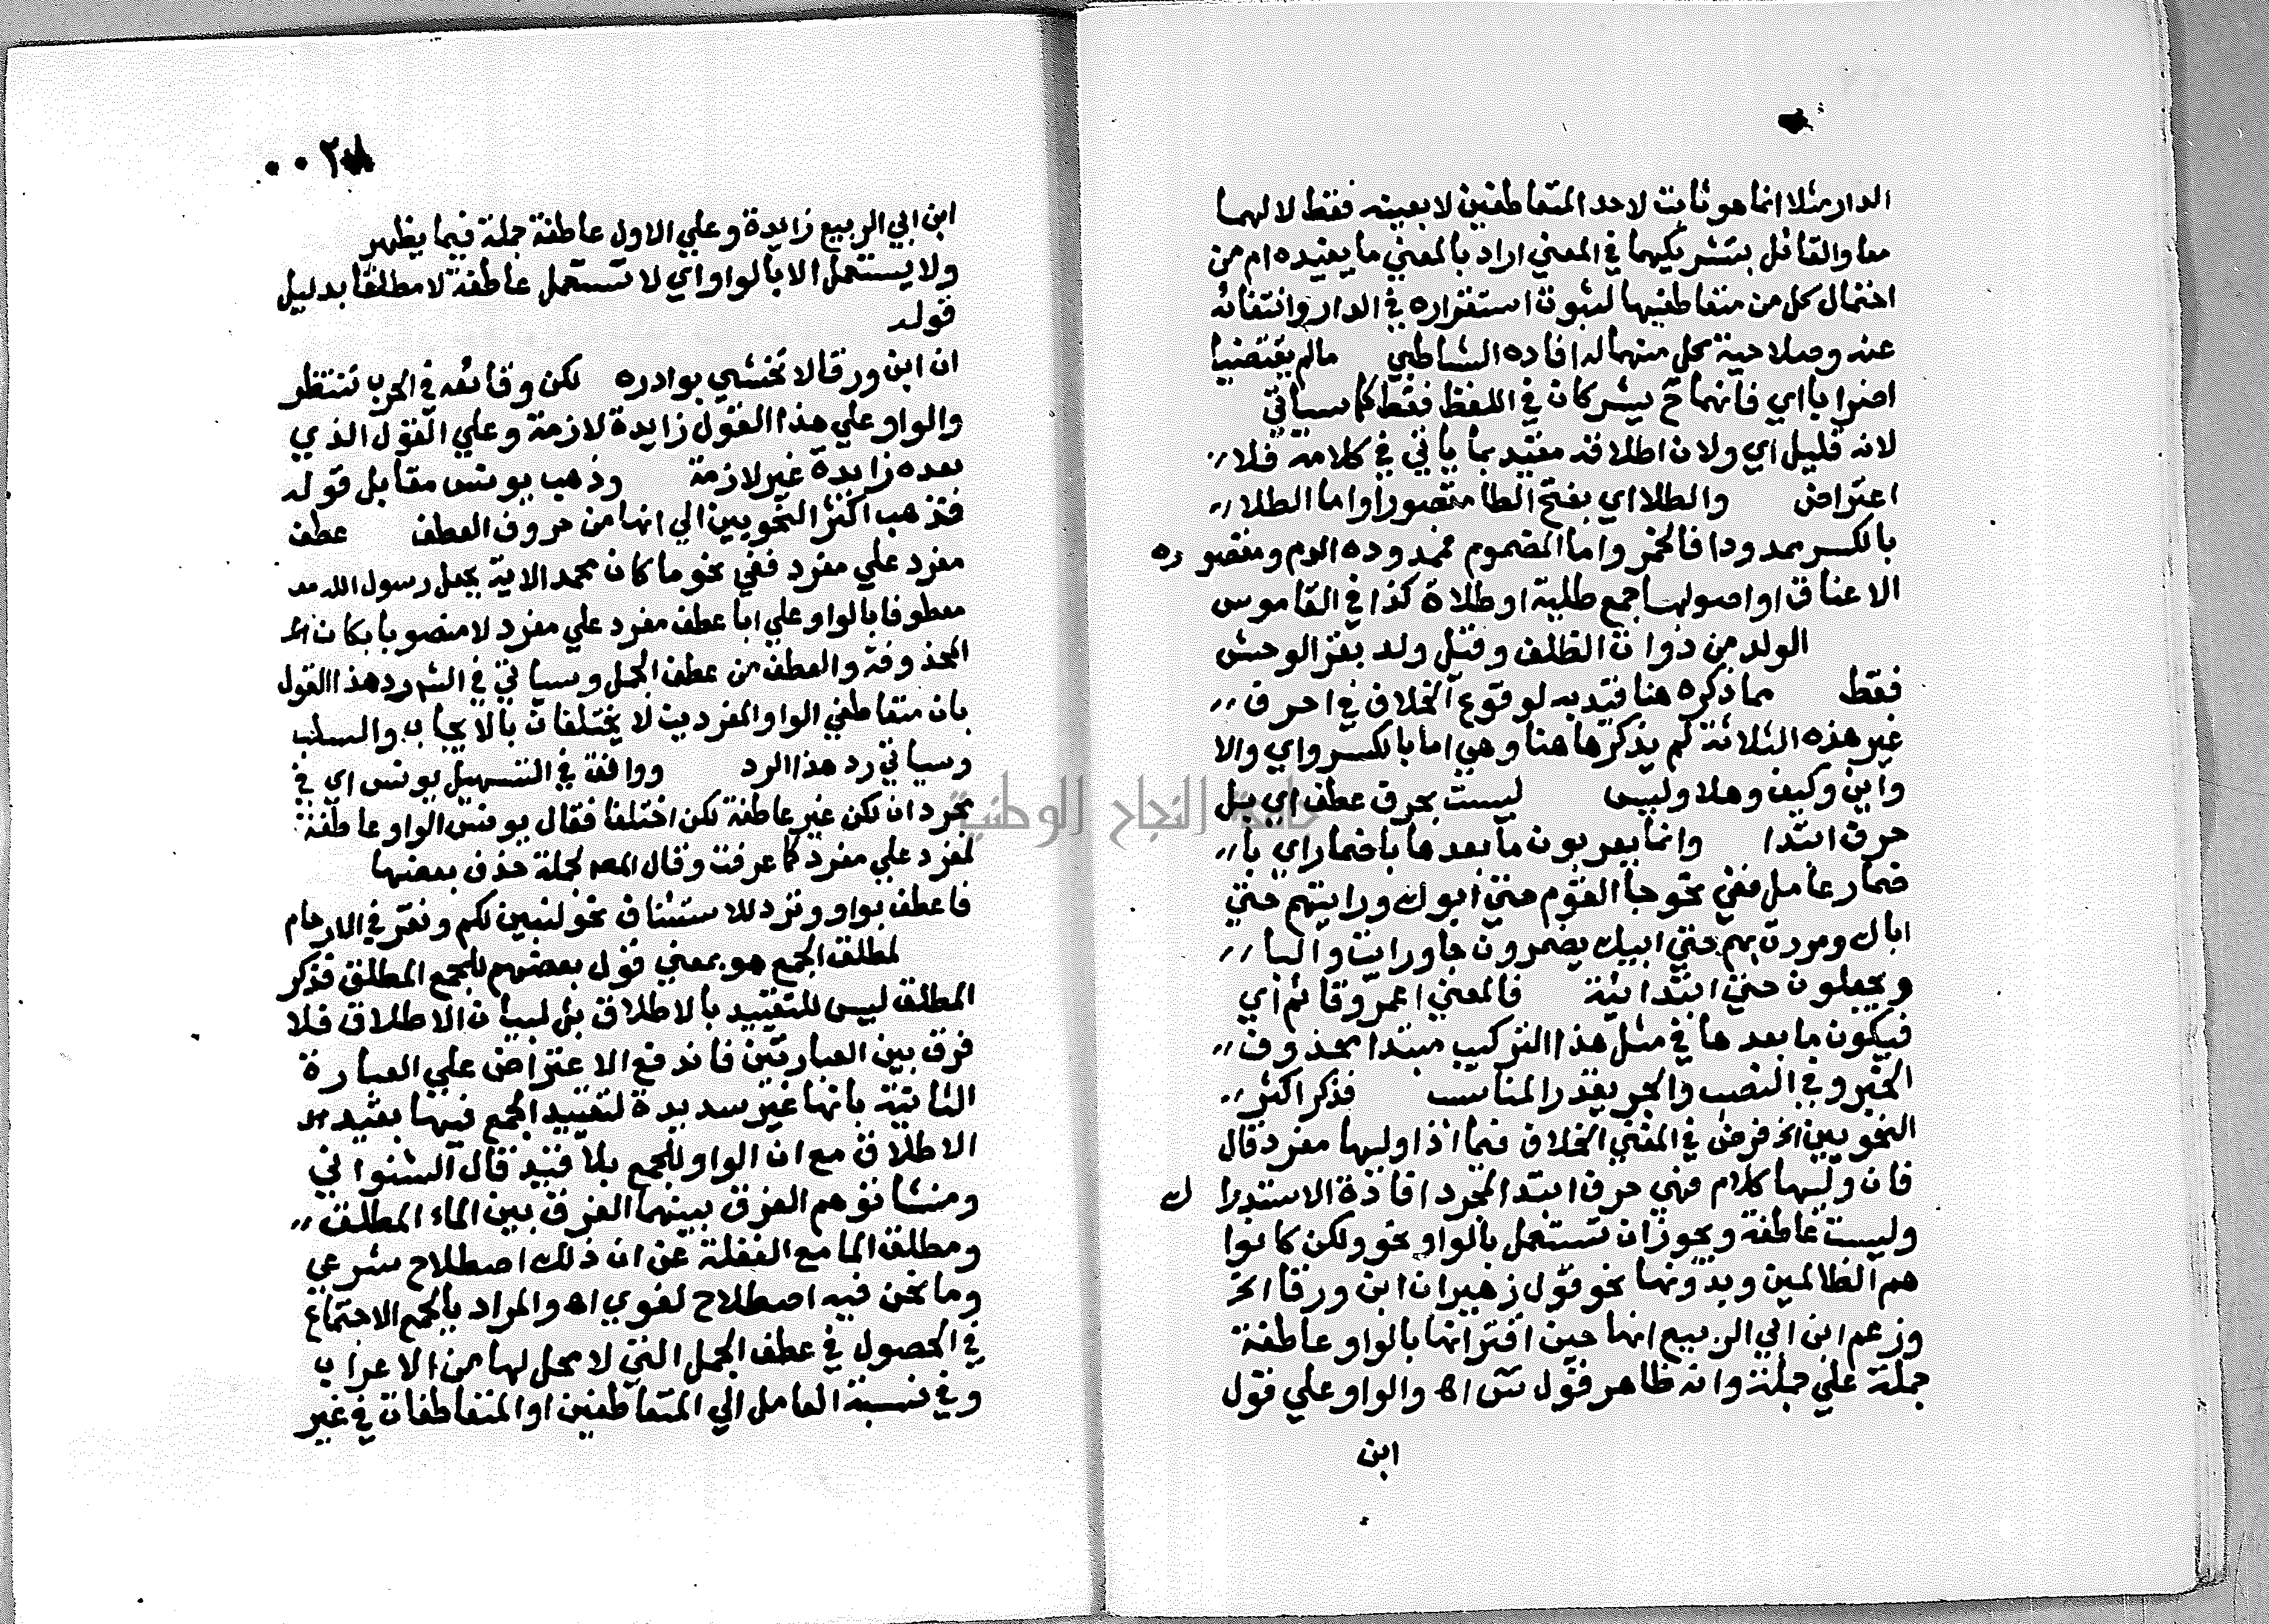 الدار مثلا انما هو ثابت لاحد المتعاطفين لا بعينه فقط لا لهما
معا والقائل بتشريكهما في المعني اراد بالمعني ما يفيده ام من
احتمال كل من متعاطفيها لثبوت استقراره في الدار وانتفائه
عنه وصلاحية كل منهما له افاده الشاطبي مالم يقتضيا
اضرابا اي فانهما ح يشركان في اللفظ فقط كما سياتي
لانه قليل اي ولان اطلاقه مقيد بما ياتي في كلامه فلا
اعتراض والطلا اي بفتح الطا مقصورا واما الطلا
بالكسر ممدودا فالخمر واما المضموم فممدوده الدم ومقصوره
الاعناق او اصولها جمع طلية او طلاة كذا في القاموس
الولد من ذوات الظلف وقيل ولد بقر الوحش
فقط مما ذكره هنا قيد به لوقوع الخلاف في احرف
غير هذه الثلاثة لم يذكرها هنا وهي اما بالكسر واي والا
واين وكيف وهلا وليس ليست بحرف عطف اي بل
حرف ابتدا وانما يعربون ما بعدها باضمار اي با
ضمار عامل ففي نحو جا القوم حتي ابوك ورايتهم حتي
اباك ومررت بهم حتي ابيك يضمرون جا ورايت والبا
ويجعلون حتي ابتدائية فالمعني ا عمرو قائم اي
فيكون ما بعدها في مثل هذا التركيب مبتدا محذوف
الخبر وفي النصب والجر يقدر المناسب فذكر اكثر
النحويين الخ فرض في المغني الخلاف فيما اذا وليها مفرد قال
فان وليها كلام فهي حرف ابتدا لمجرد افادة الاستدراك
وليست عاطفة ويجوز ان تستعمل بالواو نحو ولكن كانوا
هم الظالمين وبدونها نحو قول زهير ان ابن ورقا الخ
وزعم ابن ابي الربيع انها حين اقترانها بالواو عاطفة
جملة علي جملة وانه ظاهر قول س اه والواو علي قول
ابن
٢٠٠
ابن ابي الربيع زايدة وعلي الاول عاطفة جملة فيما يظهر
ولا يستعمل الا بالواو اي لا تستعمل عاطفة لا مطلقا بدليل
قوله
ان ابن ورقا لا تخشي بوادره لكن وقائعه في الحرب تنتظر
والواو علي هذا القول زايدة لازمة وعلي القول الذي
بعده زايدة غير لازمة وذهب يونس مقابل قوله
فذهب اكثر النحويين الي انها من حروف العطف عطف
مفرد علي مفرد ففي نحو ما كان محمد الاية يجعل رسول الله
معطوفا بالواو علي ابا عطف مفرد علي مفرد لا منصوبا بكان
المحذوفة والعطف من عطف الجمل وسياتي في الشرح رد هذا القول
بان متعاطفي الواو المفردين لا يختلفان بالايجاب والسلب
وسياتي رد هذا الرد ووافقه في التسهيل يونس اي في
مجرد ان لكن غير عاطفة لكن اختلفا فقال يونس الواو عاطفة
لمفرد علي مفرد كما عرفت وقال المص لجملة حذف بعضها
فاعطف بواو وترد للاستئناف نحو لنبين لكم ونقر في الارحام
لمطلق الجمع هو بمعني قول بعضهم للجمع المطلق فذكر
المطلق ليس للتقييد بالاطلاق بل لبيان الاطلاق فلا
فرق بين العبارتين فاندفع الاعتراض علي العبارة
الثانية بانها غير سديدة لتقييد الجمع فيها بقيد
الاطلاق مع ان الواو للجمع بلا قيد قال الشنواني
ومنشا توهم الفرق بينهما الفرق بين الماء المطلق
ومطلق الما مع الغفلة عن ان ذلك اصطلاح شرعي
وما نحن فيه اصطلاح لغوي اه والمراد بالجمع الاجتماع
في الحصول في عطف الجمل التي لا محل لها من الاعراب
وفي نسبة العامل الي المتعاطفين او المتعاطفات في غير
جامعة النجاح الوطنية